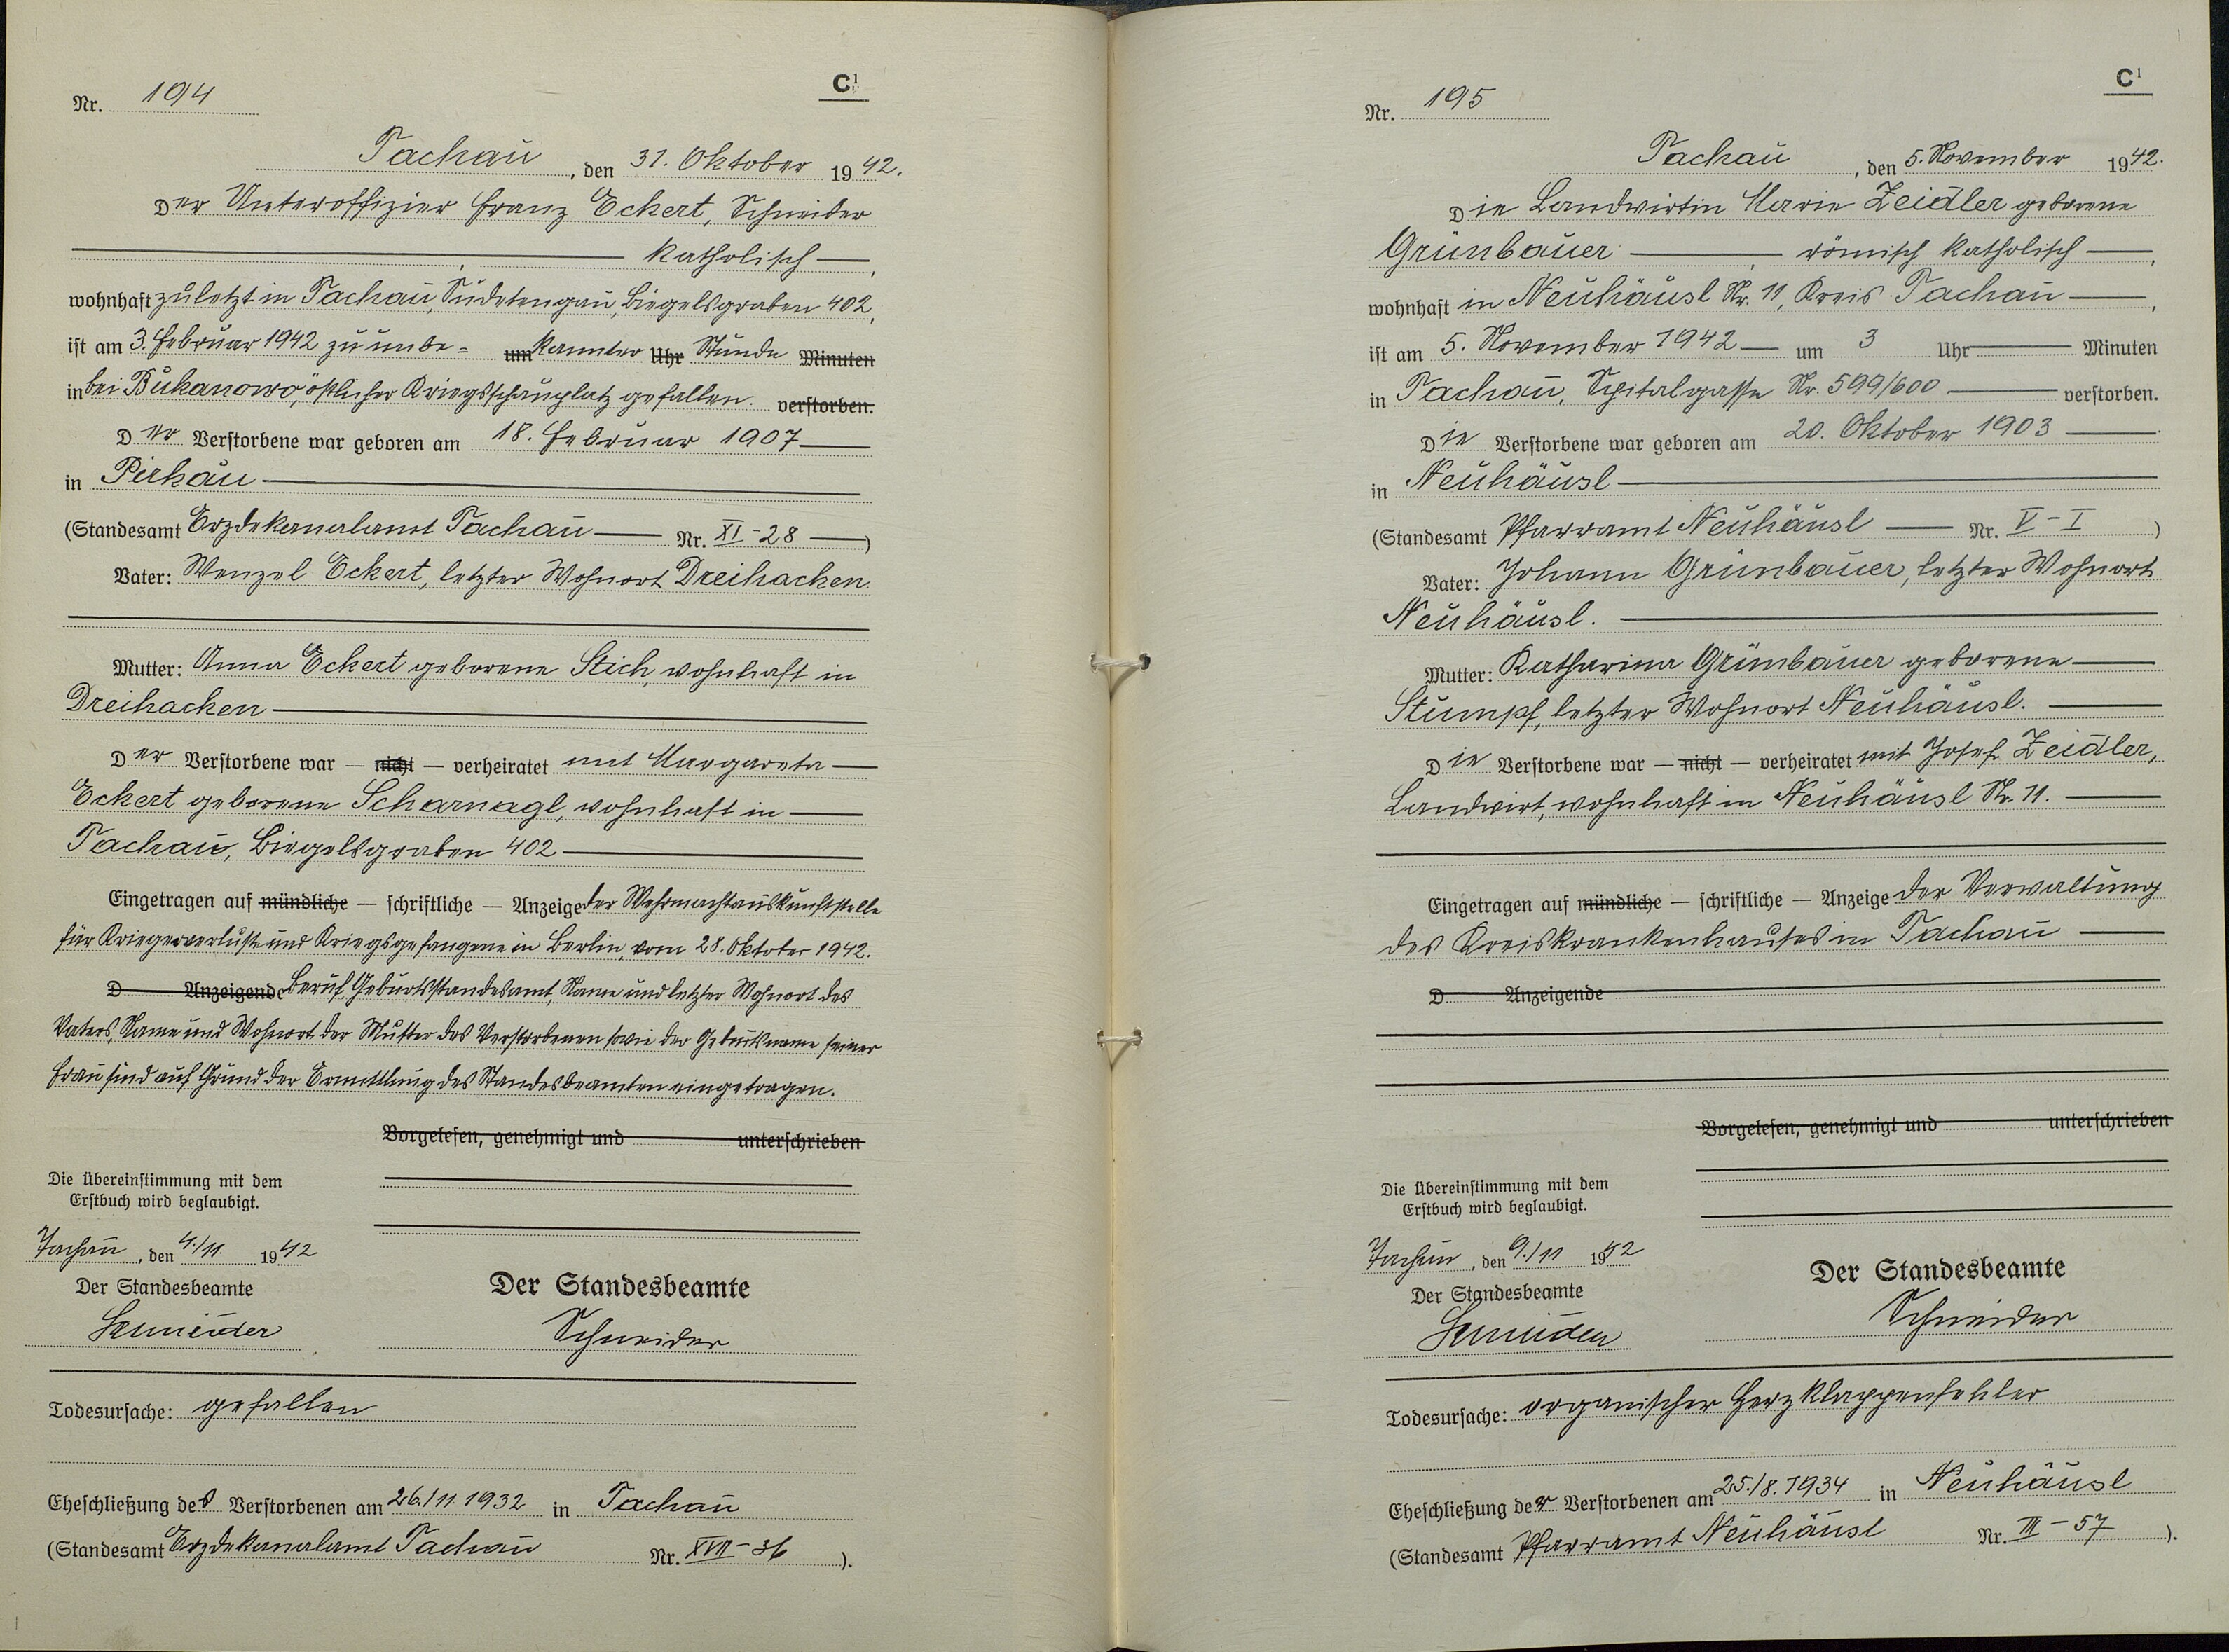 C¹
Nr. 194
Tachau, den 31. Oktober 1942.
Der Unteroffizier Franz Eckert, Schneider
katholisch
wohnhaft zuletzt in Tachau, Sudetengau, Biegelsgraben 402,
ist am 3. Februar 1942 zu unbe= um kannter Uhr Stunde Minuten
in bei Bukanowo, östlicher Kriegsschauplatz gefallen. verstorben.
Der Verstorbene war geboren am 18. Februar 1907
in Pirkau
(Standesamt Erzdekanalamt Tachau Nr. XI-28)
Vater: Wenzel Eckert, letzter Wohnort Dreihacken.
Mutter: Anna Eckert geborene Stich, wohnhaft in
Dreihacken
Der Verstorbene war — nicht — verheiratet mit Margareta
Eckert geborene Scharnagl, wohnhaft in
Tachau, Biegelsgraben 402
Eingetragen auf mündliche — schriftliche — Anzeige der Wehrmachtauskunftstelle
für Kriegerverluste und Kriegsgefangene in Berlin, vom 28. Oktober 1942.
D Anzeigende Beruf, Geburtsstandesamt, Name und letzter Wohnort des
Vaters, Name und Wohnort der Mutter des Verstorbenen sowie der Geburtsname seiner
Frau sind auf Grund der Ermittlung des Standesbeamten eingetragen.
Vorgelesen, genehmigt und unterschrieben
Die Übereinstimmung mit dem
Erstbuch wird beglaubigt.
Tachau, den 4./11. 1942
Der Standesbeamte
Schneider
Der Standesbeamte
Schneider
Todesursache: gefallen
Eheschließung des Verstorbenen am 26./11 1932 in Tachau
(Standesamt Erzdekanalamt Tachau Nr. XVII-36).
C¹
Nr. 195
Tachau, den 5. November 1942.
Die Landwirtin Marie Zeidler geborene
Grünbauer, römisch katholisch,
wohnhaft in Neuhäusl Nr. 11, Kreis Tachau,
ist am 5. November 1942 um 3 Uhr Minuten
in Tachau, Spitalgasse Nr. 599/600 verstorben.
Die Verstorbene war geboren am 20. Oktober 1903
in Neuhäusl
(Standesamt Pfarramt Neuhäusl Nr. V-I)
Vater: Johann Grünbauer, letzter Wohnort
Neuhäusl.
Mutter: Katharina Grünbauer geborene
Stumpf, letzter Wohnort Neuhäusl.
Die Verstorbene war — nicht — verheiratet mit Josef Zeidler,
Landwirt, wohnhaft in Neuhäusl Nr. 11.
Eingetragen auf mündliche — schriftliche — Anzeige der Verwaltung
des Kreiskrankenhauses in Tachau
D Anzeigende
Vorgelesen, genehmigt und unterschrieben
Die Übereinstimmung mit dem
Erstbuch wird beglaubigt.
Tachau, den 9./11 1942
Der Standesbeamte
Schneider
Der Standesbeamte
Schneider
Todesursache: organischer Herzklappenfehler
Eheschließung der Verstorbenen am 25./8. 1934 in Neuhäusl
(Standesamt Pfarramt Neuhäusl Nr. III-57).